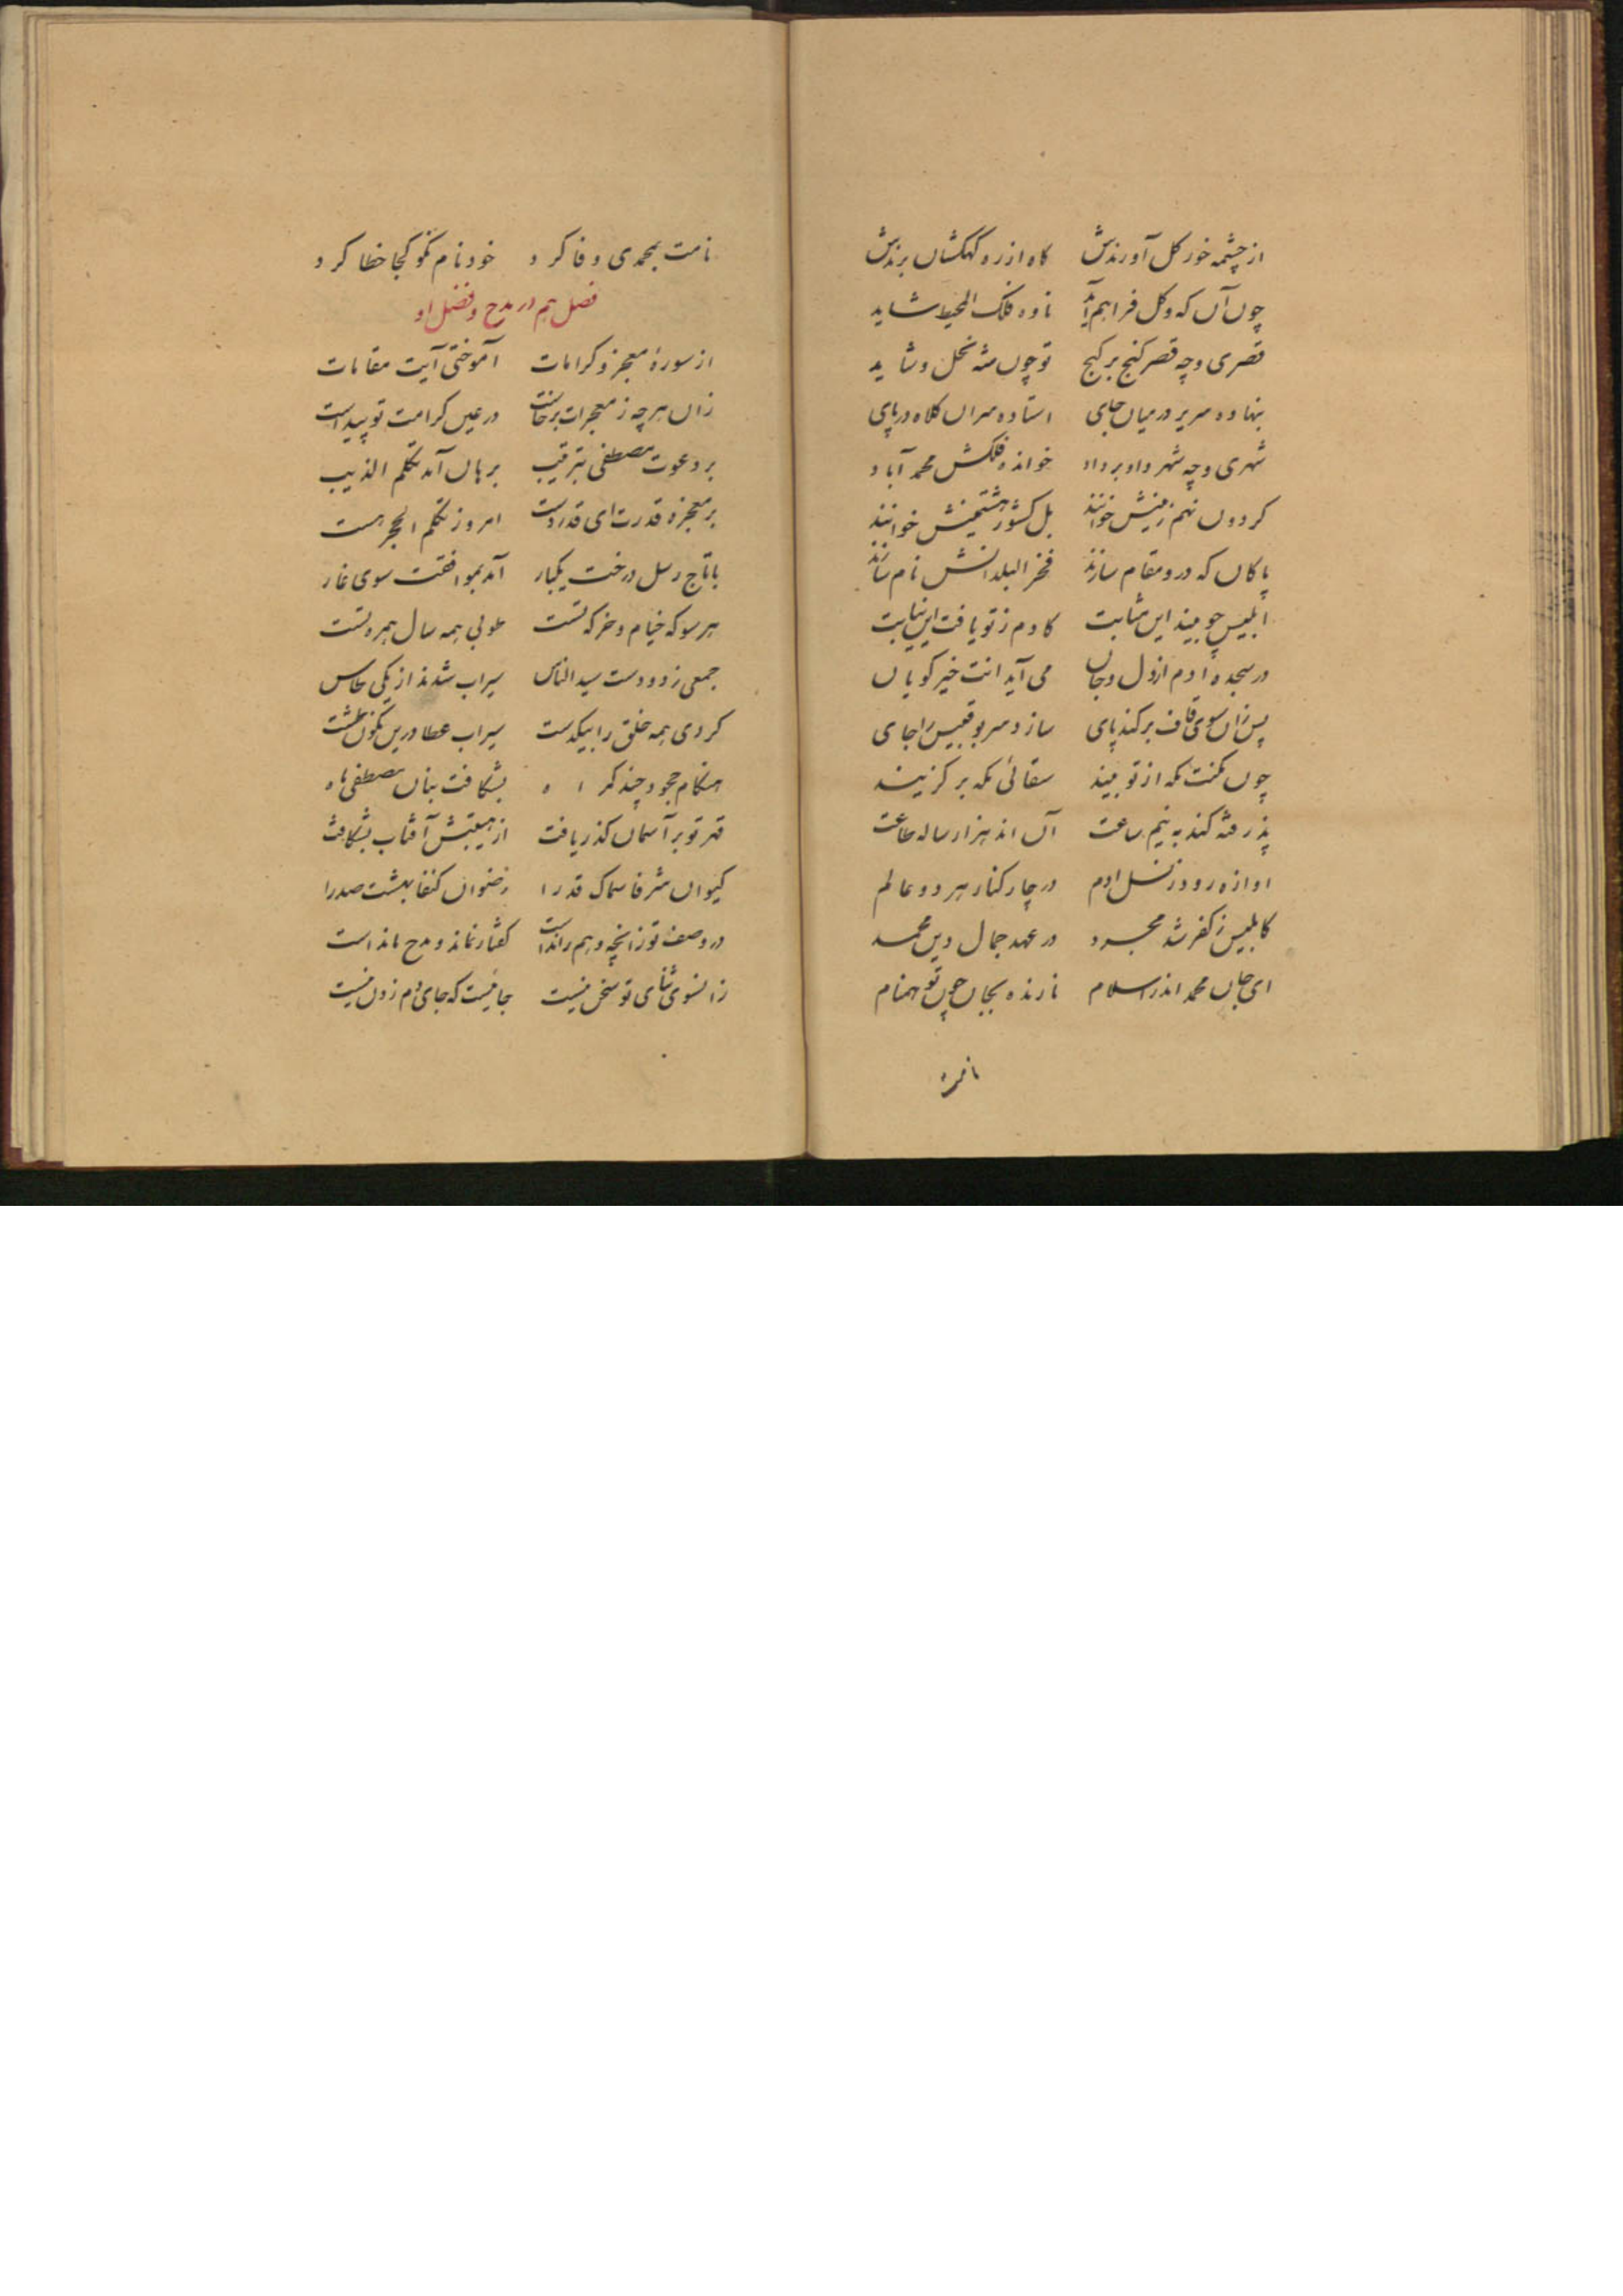 از چشمه خور گل آورندش کاه از ره کهکشان برندش
چون آن که و گل فراهم آید ناوه فلک المحیط شاید
قصری و چه قصر کنج بر کنج تو چون شه نحل و
بنهاده سریر در میان جای استاده سران کلاه در پای
شهری و چه شهر داد بر داد خوانده فلکش محمد آباد
کردون نهم زمینش خوانند بل کشور هشتمینش خوانند
پاکان که درو مقام سازند فخر البلدانش نام سازند
ابلیس چو بیند این مثابت کادم ز تو یافت این نیابت
در سجده ادم از دل و جان می آید انت خیر کویان
پس زان سوی قاف برکند پای سازد سر بوقبیس را جای
چون مکنت مکه از تو بیند سقائی مکه بر کزیند
پذرفته کند به نیم ساعت آن اند هزار ساله طاعت
اوازه رود ز نسل ادم در چار کنار هر دو عالم
کابلیس ز کفر شد مجرد در عهد جمال دین محمد
ای جان محمد اندر اسلام نازنده بجان چون تو همنام
نامت
نامت بمحمدی وفا کرد خود نام نکو کجا خطا کرد
فصل هم در مدح و فضل او
از سورهٔ معجز و کرامات آموختی آیت مقامات
زان هر چه ز معجزات برخاست در عین کرامت تو پیداست
بر دعوت مصطفی بترقیب برهان آمد تکلم الذیب
بر معجزه قدرت ای قدر دست امروز تکلم الحجر هست
با تاج رسل درخت یکبار آمد بموافقت سوی غار
هر سو که خیام و خرکه تست طوبی همه سال همره تست
جمعی ز دو دست سید الناس سیراب شدند از یکی طاس
کردی همه خلق را بیکدست سیراب عطا درین نکون طشت
هنکام جحود چند کمراه بشکافت بنان مصطفی ماه
قهر تو بر آسمان کذر یافت از هیبتش آفتاب بشکافت
کیوان شرفا سماک قدرا رضوان کنفا بهشت صدرا
در وصف تو زانچه وهم رانداست کفتار نماند و مدح مانداست
زانسوی ثنای تو سخن نیست جائیست که جای دم زدن نیست